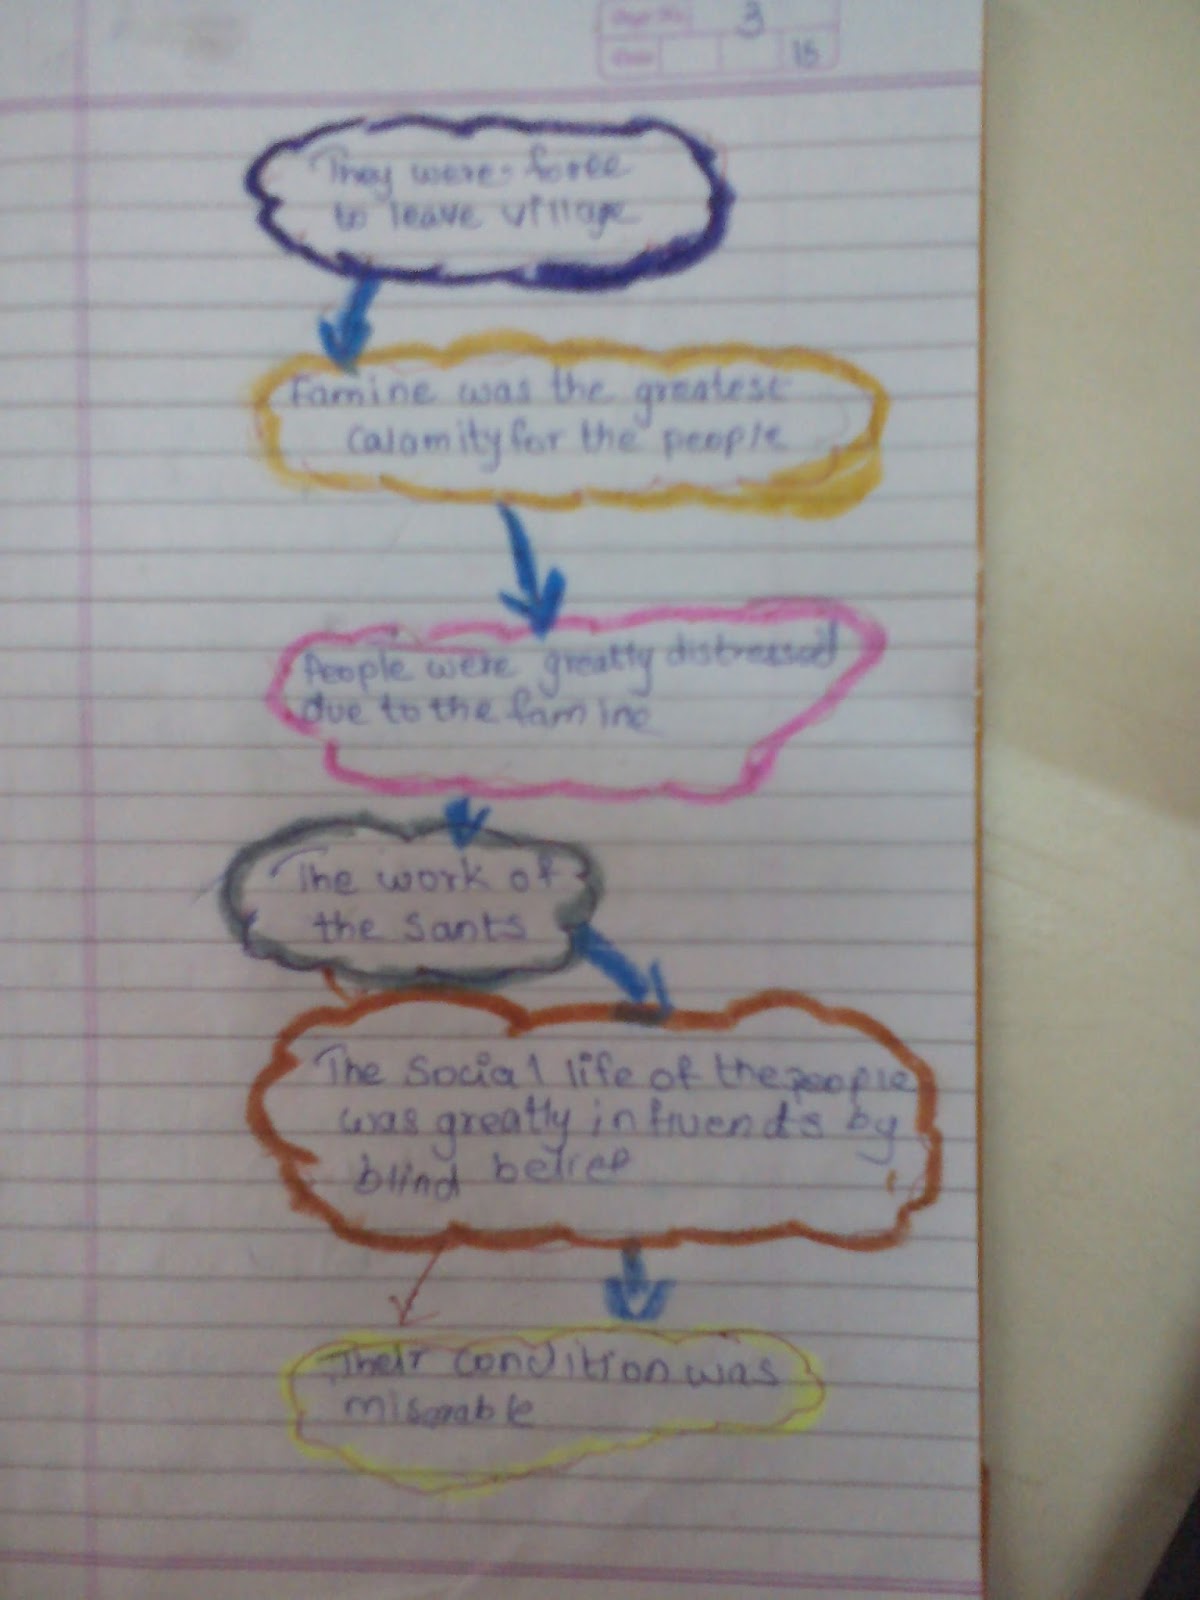 Page No. 3
Date 15
They were force
to leave village
Famine was the greatest
calamity for the people
People were greatly distressed
due to the famine
The work of
the Sants
The Social life of the people
was greatly influends by
blind belief
Their condition was
misarable